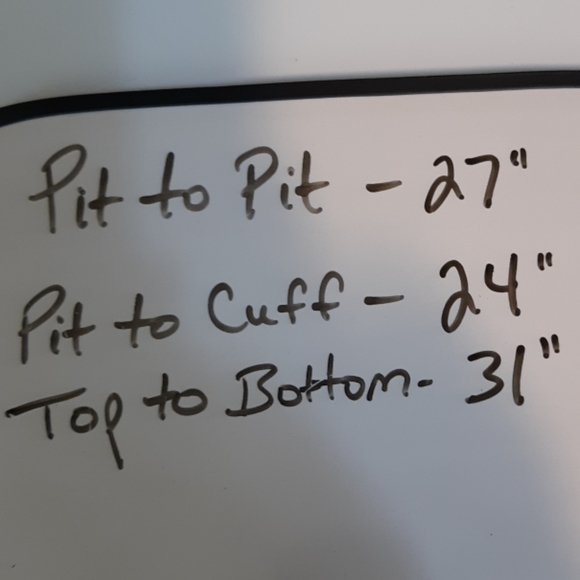 Pit to Pit - 27"
Pit to Cuff - 24"
Top to Bottom- 31"